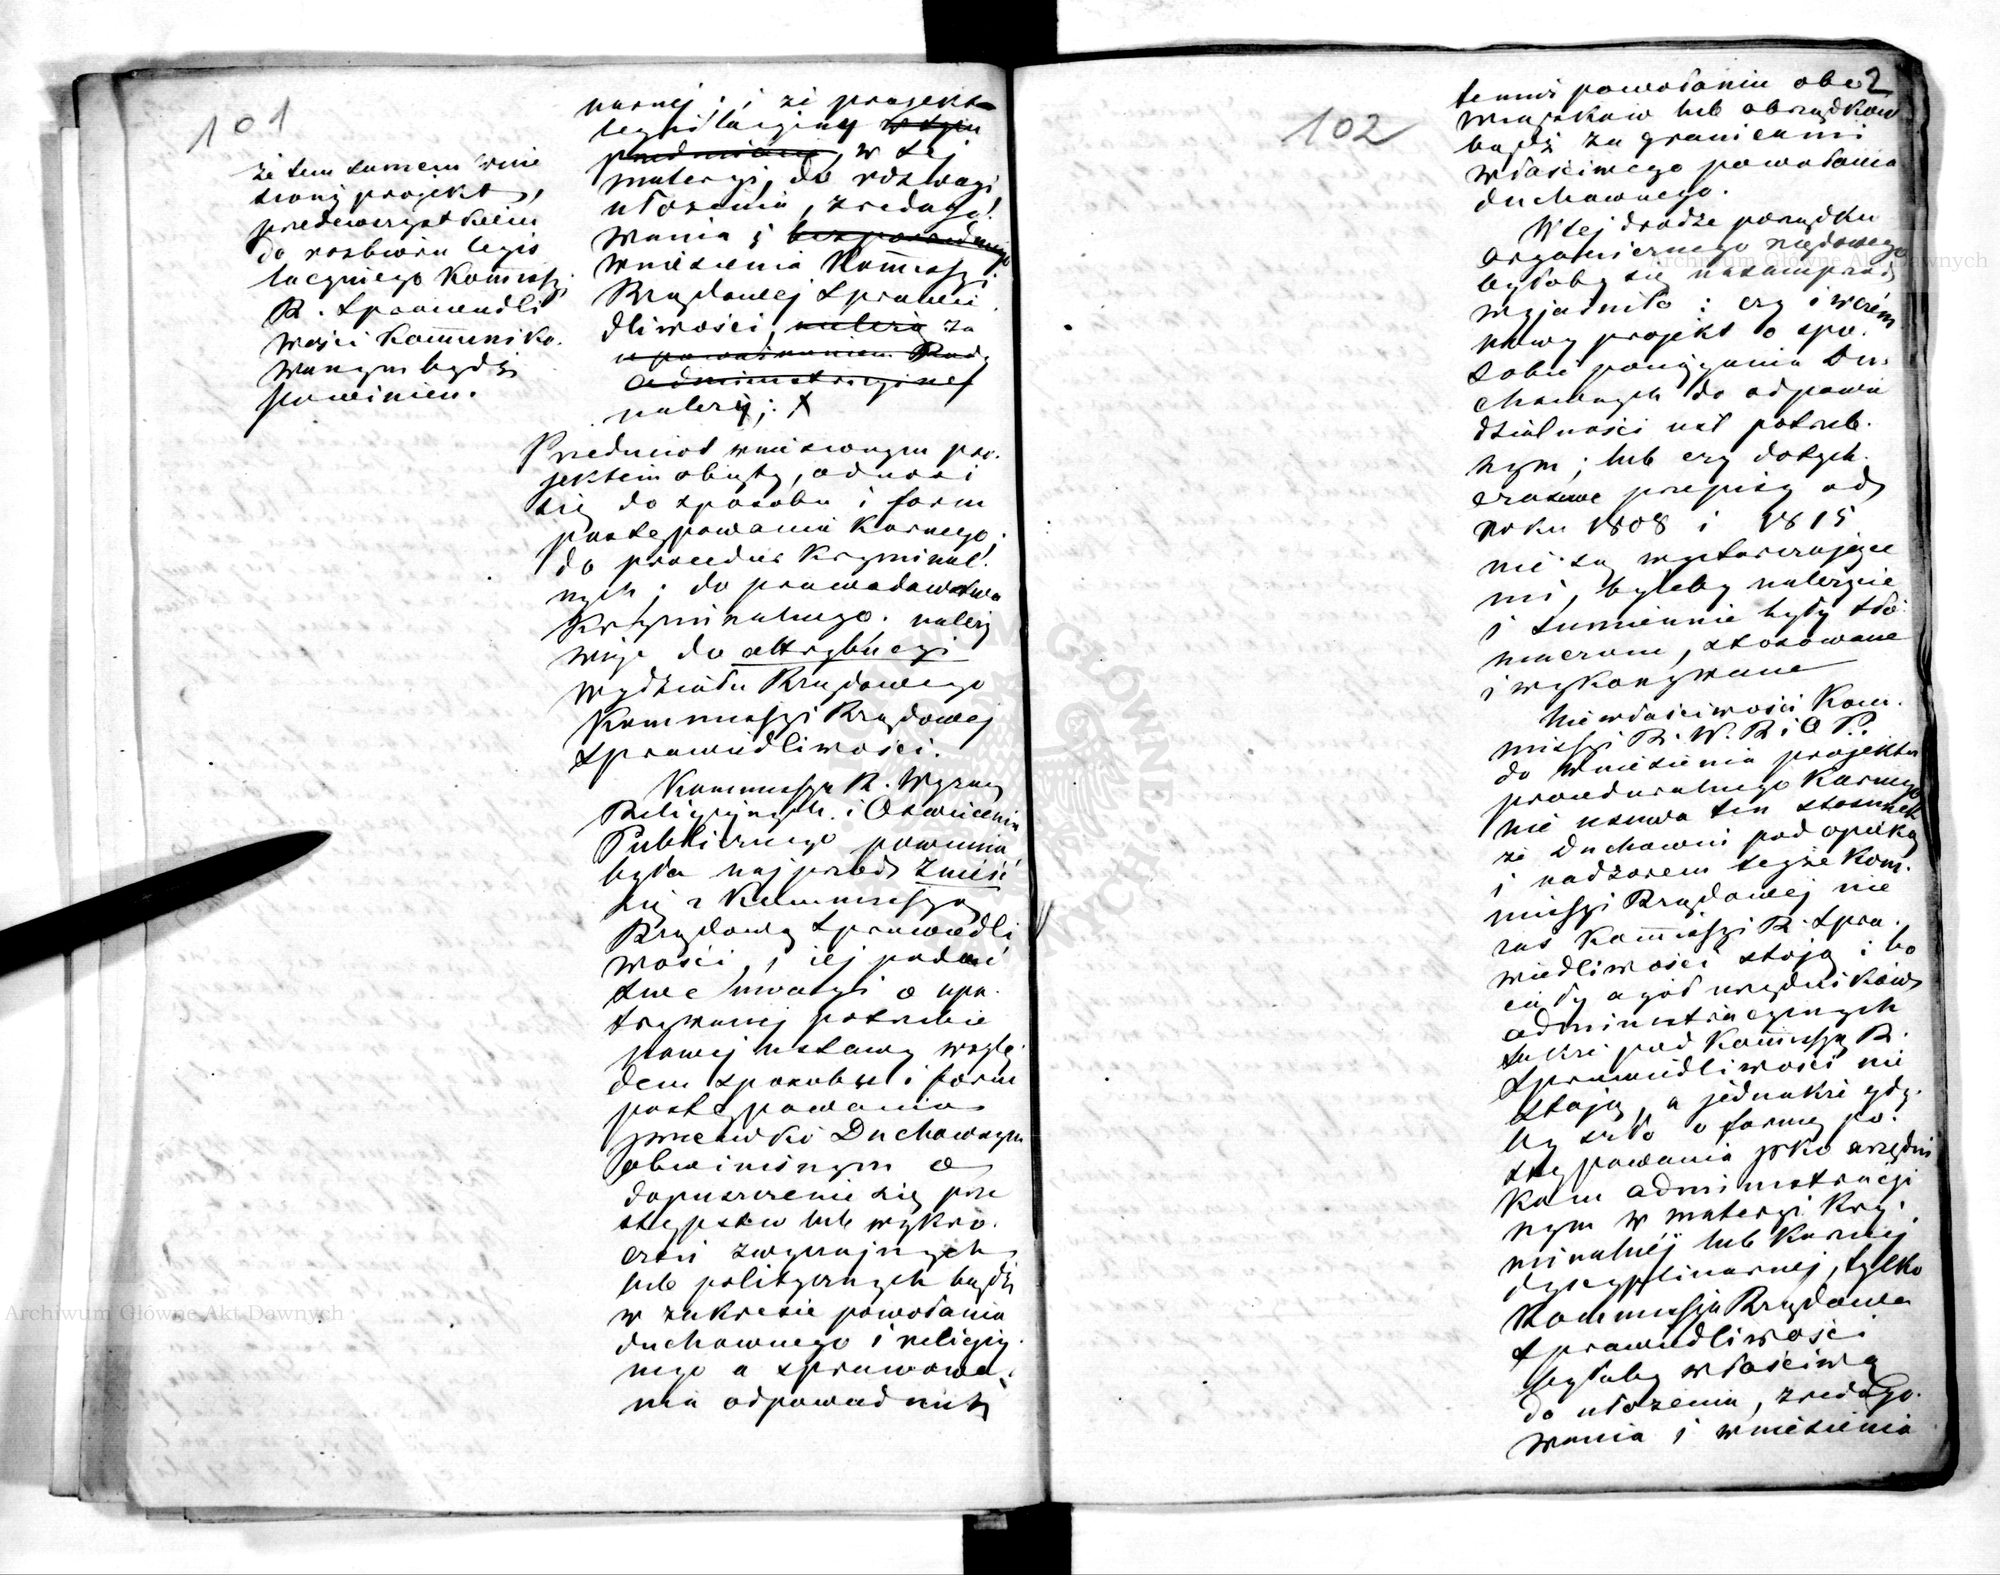 101
że tem samem wnie
siony projekt,
przedewszystkiem
do rozbioru legis
lacyjnego Kommissyi
R. Sprawiedli
wości kommuniko.
wanym bydź
powinien.
narnej; i że projekt
legislacyjny w tym
przedmiocie, w tej
materyi, do rozwagi
ułożenia, zredago!
wania i bezpośredniego
wniesienia Kommissyi
Rządowej Sprawie
dliwości, należy za
upoważnieniem Rady
administracyjnej
należy; X
Przedmiot wniesionym pro.
jektem objęty, odnosi
się do sposobu i form
postępowania karnego;
do procedur kryminal!
nych; do prawodawstwa
kryminalnego. należy
więc do attrybucyi
wydziału Rządowego
Kommissyi Rządowej
Sprawiedliwości.
Kommissya R. Wyznań
Religijnych i Oświecenia
Publicznego powinna
była najprzód znieść
się z Kommissyą
Rządową Sprawiedli
wości, i iej podać
swe uwagi o upa.
trywanej potrzebie
nowej ustawy wzglę.
dem sposobu i form
postępowania
przeciwko Duchownym
obwinionym o
dopuszczenie się prze
stępstw lub wykro.
czeń zwyczajnych
lub politycznych bądź
w zakresie powołania
duchownego i religij.
nego a sprawowa.
nia odpowiednich
102
2
temuż powołaniu obo
wiązków lub obrządków
bądź za granicami
właściwego powołania
duchownego.
W tej drodze porządku
organicznego rządowego
byłoby się nasamprzód
wyjaśniło: czy i w czém
nowy projekt o spo.
sobie pociągania Du.
chownych do odpowie
dzialności jest potrzeb.
nym; lub czy dotych.
czasowe przepisy od
roku 1808 i 1815
nie są wystarczające
mi, byleby należycie
i sumiennie były tłó.
maczone, stosowane
i wykonywane
Niewłaściwości Kom.
missyi R. W. R. i O. P.
do wniesienia projektu
proceduralnego karnego
nie usuwa ten stosunek
że Duchowni pod opieką
i nadzorem tegoż Kom.
missyi Rządowej nie
zaś Kommissyi R. Spra.
wiedliwości stoją; bo
cały ogół urzędników
administracyjnych
także pod Kommissyą R.
Sprawiedliwości nie
stoją, a jednakże gdy.
by szło o formę po.
stępowania jako urzędni
kom administracyj
nym w materyi kry.
minalnéj lub karnej
dyscyplinarnej, tylko
Kommissya Rządowa
Sprawiedliwości
byłaby właściwą
do ułożenia, zredago.
wania i wniesienia
Archiwum Główne Akt Dawnych
Archiwum Główne Akt Dawnych